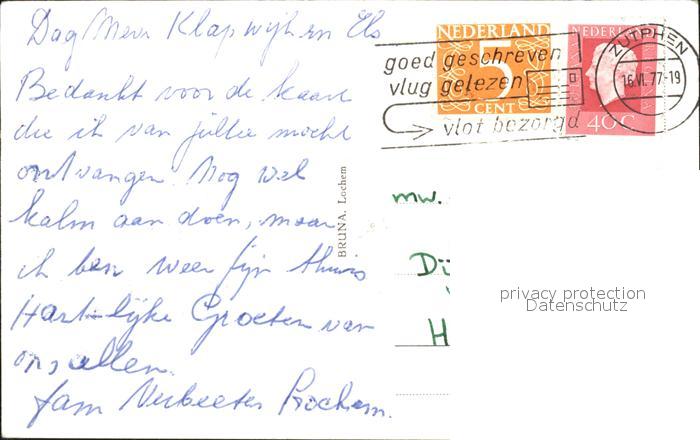 Dag Mevr Klapwijk en Els
Bedankt voor de kaart
die ik van jullie mocht
ontvangen. Nog wel
kalm aan doen, maar
ik ben weer fijn thuis
Hartelijke Groeten van
ons allen.
fam Verbeeter Lochem.
BRUNA, Lochem
NEDERLAND
5
CENT
NEDERLAND
40C
goed geschreven
vlug gelezen
vlot bezorgd
ZUTPHEN
16.VI.77-19
mw.
Di
H
privacy protection
Datenschutz